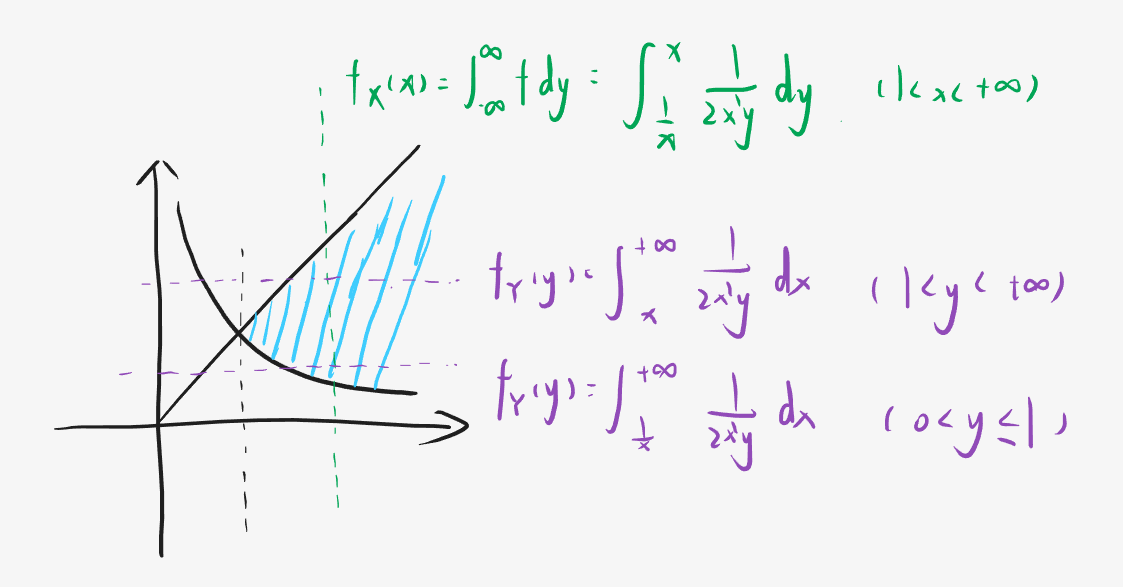 f_X(x) = ∫_{-∞}^{∞} f dy = ∫_{1/x}^{x} 1/(2x²y) dy (1 < x < +∞)
f_Y(y) = ∫_{x}^{+∞} 1/(2x²y) dx (1 < y < +∞)
f_Y(y) = ∫_{1/x}^{+∞} 1/(2x²y) dx (0 < y ≤ 1)